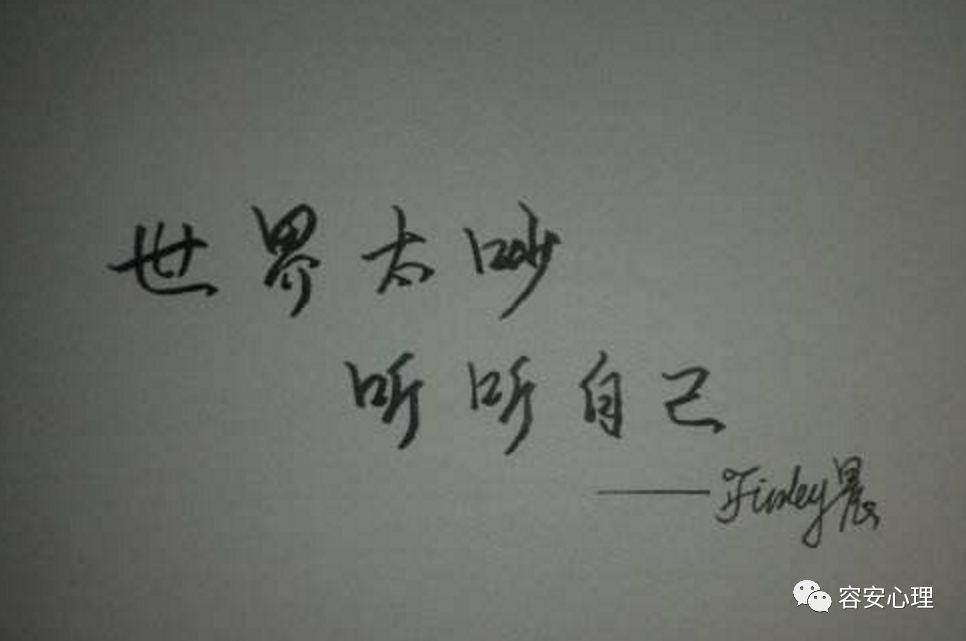 世界太吵
听听自己
——Finley晨
容安心理